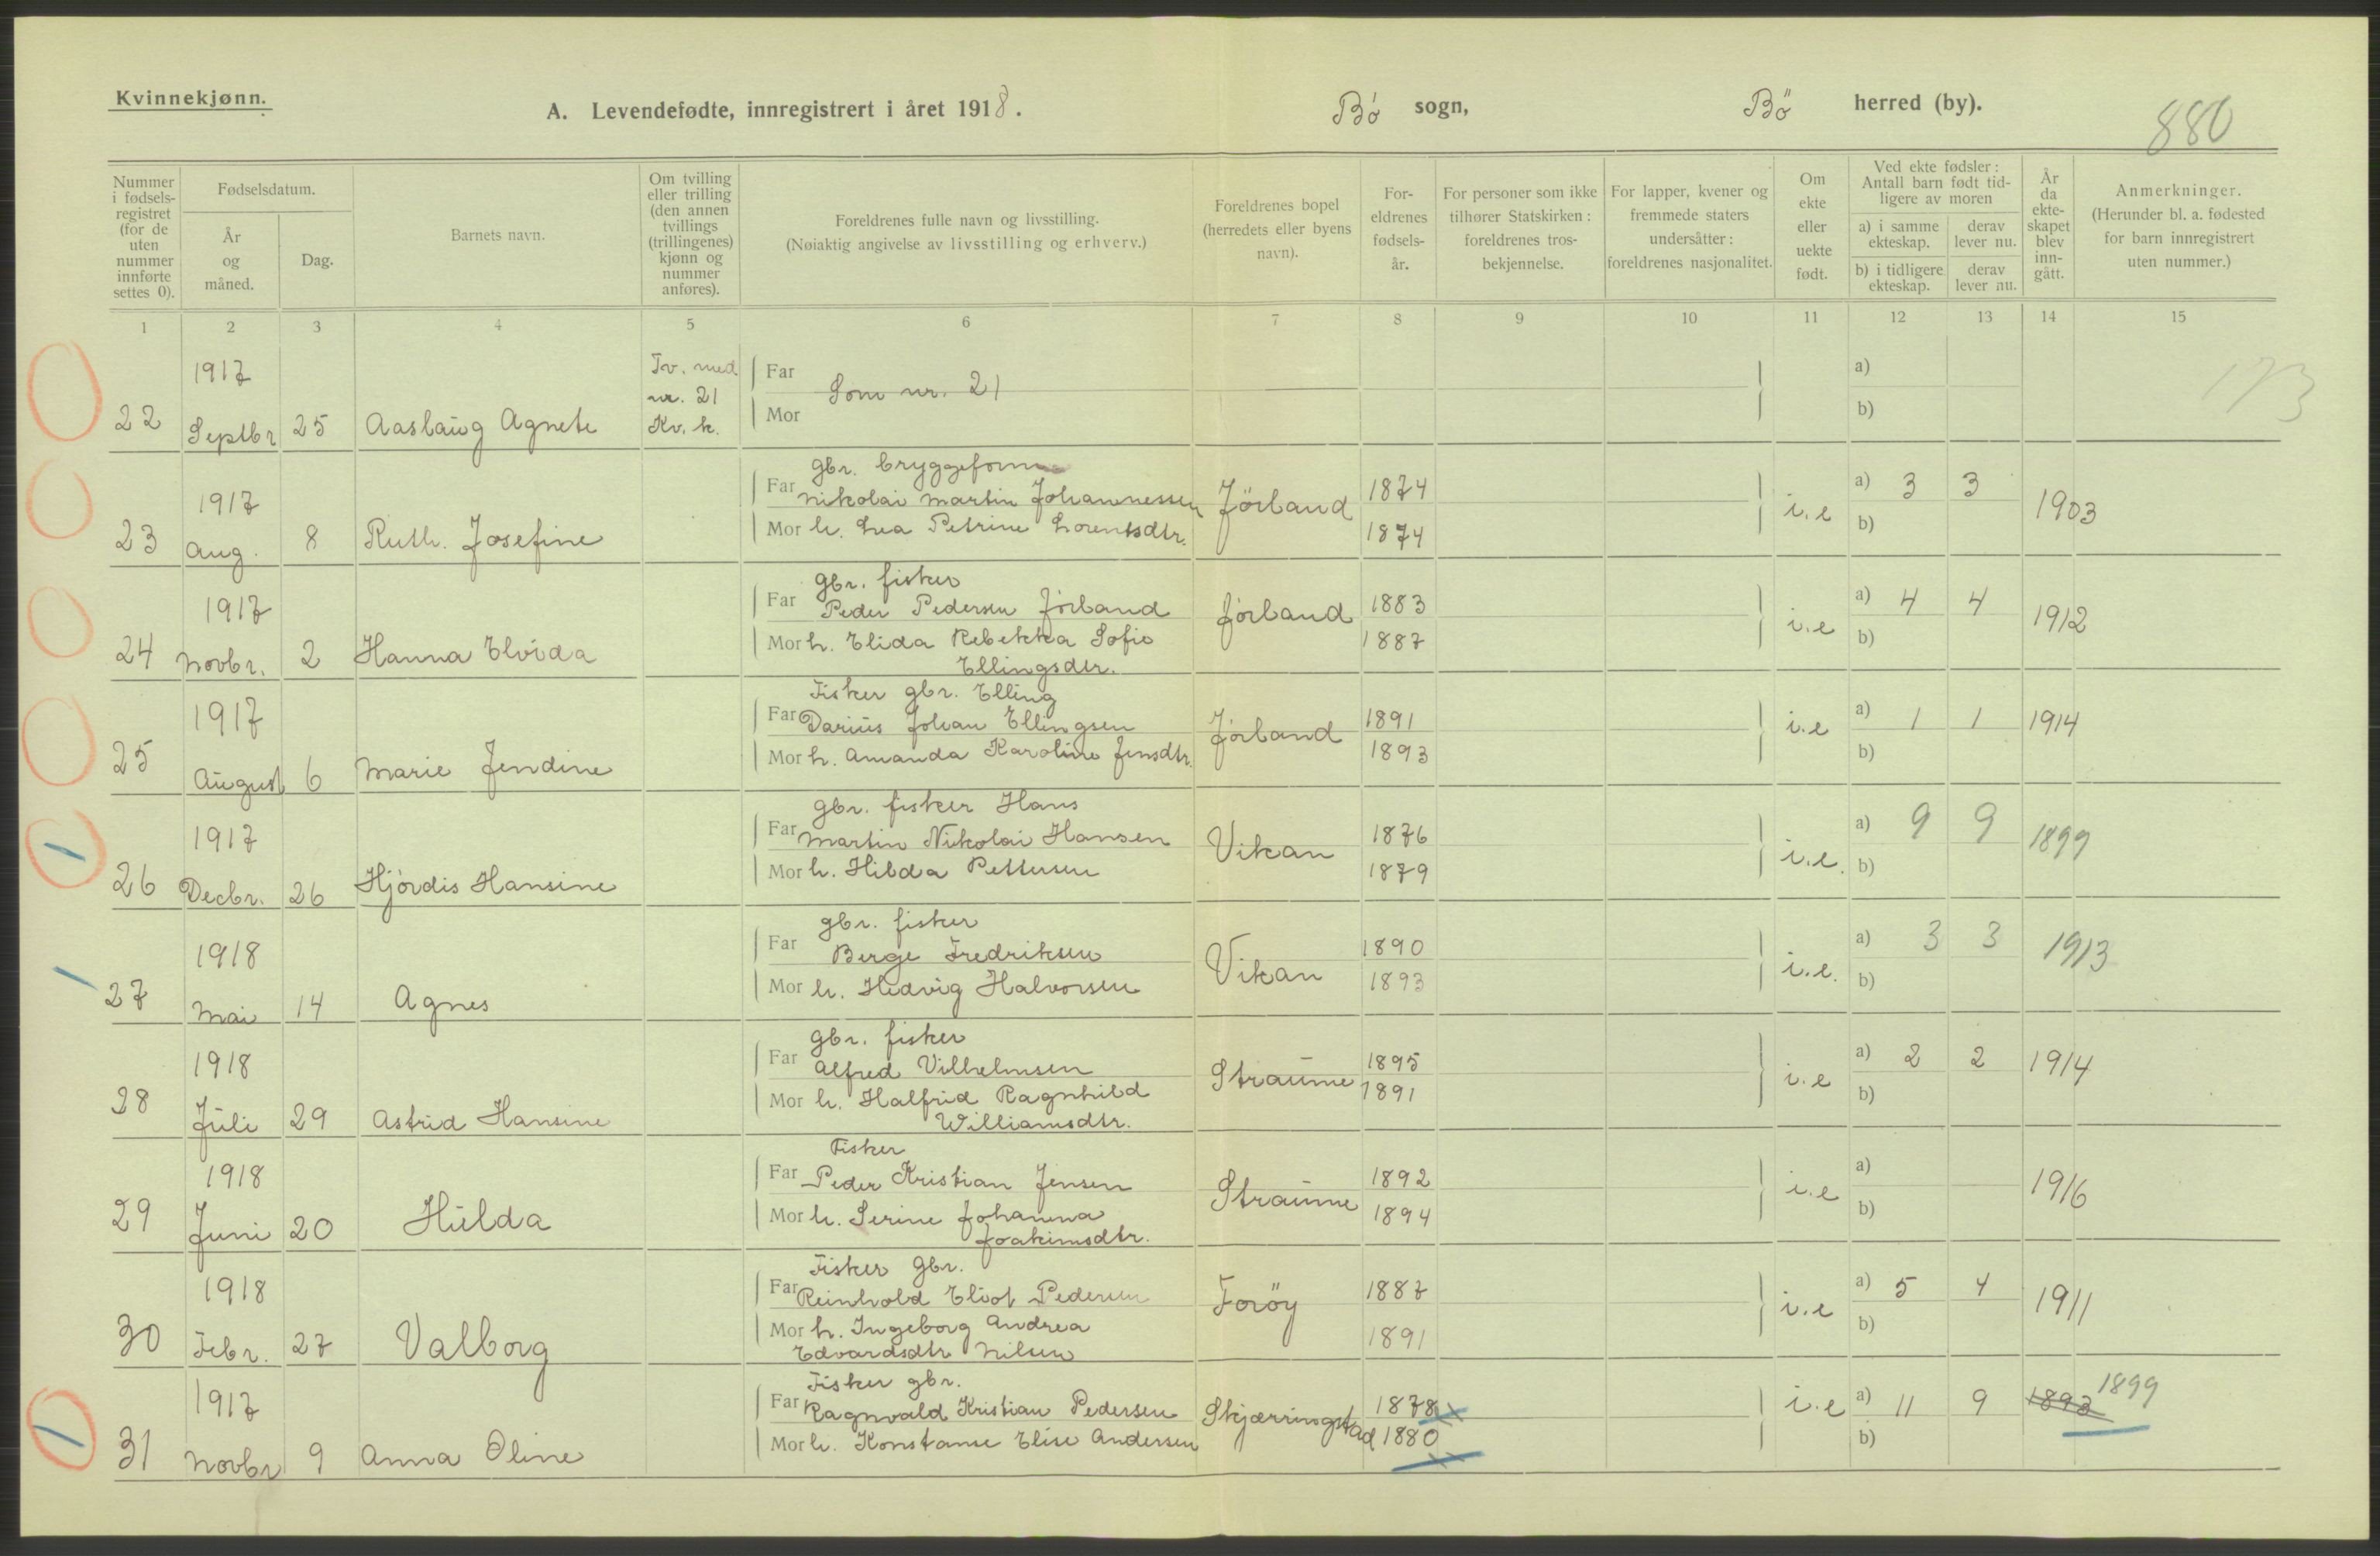 Kvinnekjønn.
A. Levendefødte, innregistrert i året 1918.
Bö sogn, Bö herred (by).
880
Nummer i fødsels-registret (for de uten nummer innførte settes 0).
Fødselsdatum.
År og måned.
Dag.
Barnets navn.
Om tvilling eller trilling (den annen tvillings (trillingenes) kjønn og nummer anføres).
Foreldrenes fulle navn og livsstilling.
(Nøiaktig angivelse av livsstilling og erhverv.)
Foreldrenes bopel (herredets eller byens navn).
For-eldrenes fødsels-år.
For personer som ikke tilhører Statskirken: foreldrenes tros-bekjennelse.
For lapper, kvener og fremmede staters undersåtter: foreldrenes nasjonalitet.
Om ekte eller uekte født.
Ved ekte fødsler: Antall barn født tid-ligere av moren
a) i samme ekteskap.
derav lever nu.
b) i tidligere ekteskap.
derav lever nu.
År da ekte-skapet blev inn-gått.
Anmerkninger.
(Herunder bl. a. fødested for barn innregistrert uten nummer.)
1 2 3 4 5 6 7 8 9 10 11 12 13 14 15
22 1917 Septbr 25 Aaslaug Agnete Tv. med nr. 21 Kv. k.
Far Som nr. 21
Mor
a)
b)
173
23 1917 Aug. 8 Ruth. Josefine
gbr. bryggeform
Far Nikolai Martin Johannessen Jörland 1874 i.e a) 3 3 1903
Mor h. Lea Petrine Lorentsdtr. 1874 b)
24 1917 Novbr. 2 Hanna Elvida
gbr. fisker
Far Peder Pedersen Jörland Jörland 1883 i.e a) 4 4 1912
Mor h. Elida Rebekka Sofie 1887 b)
Ellingsdtr.
25 1917 August 6 Marie Jendine
Fisker gbr. Elling
Far Darius Johan Ellingsen Jörland 1891 i.e a) 1 1 1914
Mor h. Amanda Karoline Jensdtr. 1893 b)
1
26 1917 Decbr. 26 Hjördis Hansine
gbr. fisker Hans
Far Martin Nikolai Hansen Vikan 1876 i.e. a) 9 9 1899
Mor h. Hilda Pettersen 1879 b)
27 1918 Mai 14 Agnes
gbr. fisker
Far Berge Fredriksen Vikan 1890 i.e. a) 3 3 1913
Mor h. Hedvig Halvorsen 1893 b)
28 1918 Juli 29 Astrid Hansine
gbr. fisker
Far Alfred Vilhelmsen Straume 1895 i.e a) 2 2 1914
Mor h. Halfrid Ragnhild 1891 b)
Williamsdtr.
29 1918 Juni 20 Hulda
Fisker
Far Peder Kristian Jensen Straume 1892 i.e a) 1916
Mor h. Serine Johanna 1894 b)
Joakimsdtr.
30 1918 Febr. 27 Valborg
Fisker Gbr.
Far Reinhold Eliot Pedersen Foröy 1887 i.e a) 5 4 1911
Mor h. Ingeborg Andrea 1891 b)
Edvardsdtr Nilsen
1
31 1917 Novbr 9 Anna Oline
Fisker gbr.
Far Ragnvald Kristian Pedersen Skjærringstad 1878 i.e a) 11 9 1893 1899
Mor h. Konstanse Elise Andersen 1880 b)